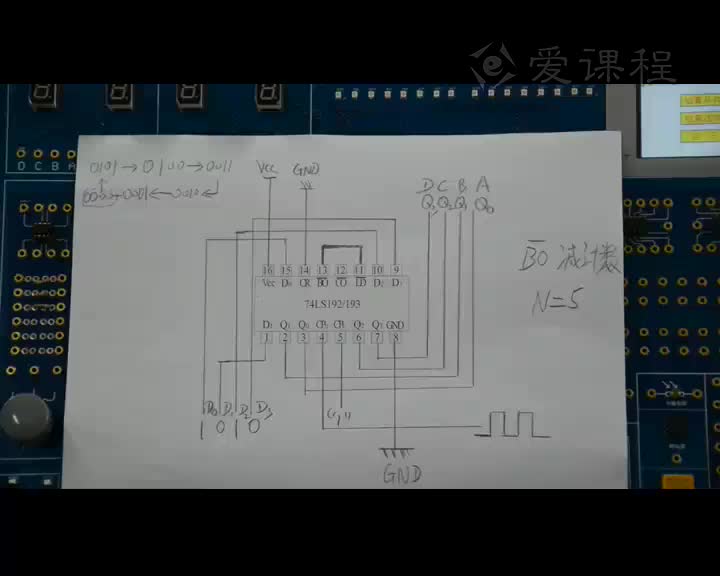 爱课程
D C B A
0101→0100→0011
0001←0010
Vcc GND
D C B A
Q3 Q2 Q1 Q0
B̅O̅ 减计数
N=5
16 15 14 13 12 11 10 9
Vcc D0 CR BO CO LD D2 D3
74LS192/193
D1 Q1 Q0 CPD CPU Q2 Q3 GND
1 2 3 4 5 6 7 8
D0 D1 D2 D3
1 0 1 0
"1"
GND